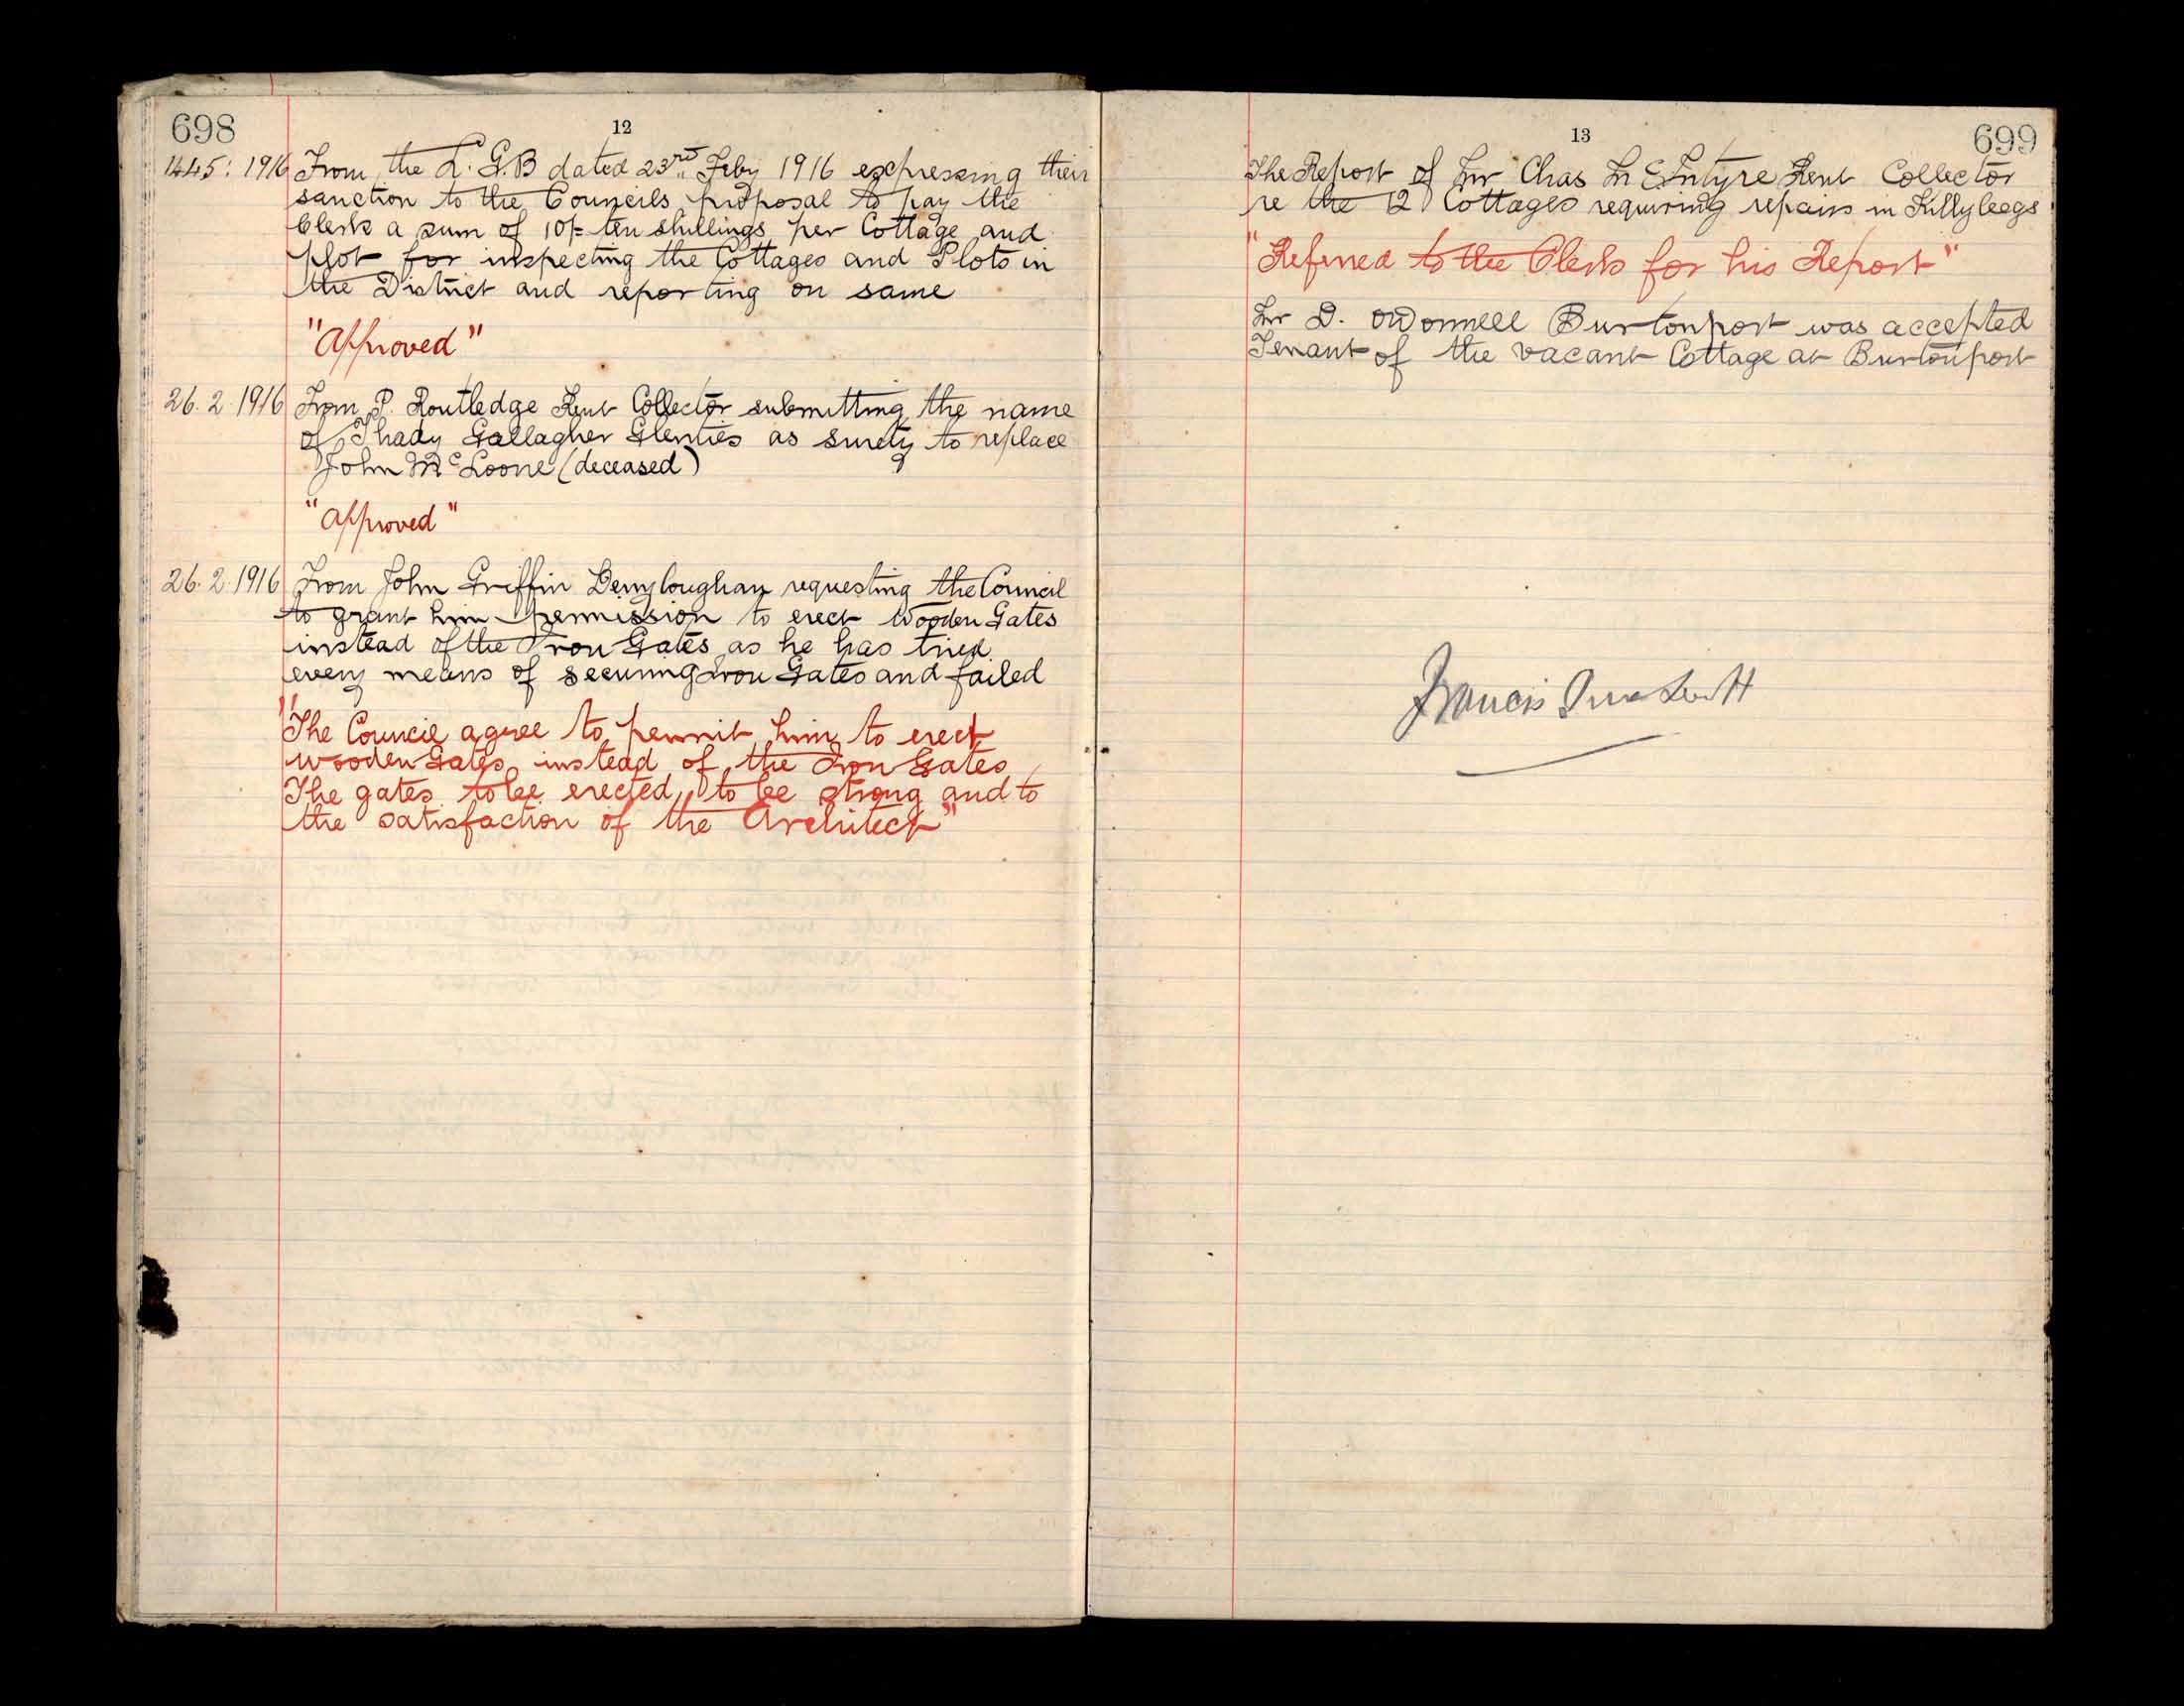 698
12
1445: 1916 From the L.G.B dated 23rd Feby 1916 expressing their
sanction to the Councils proposal to pay the
Clerk a sum of 10/= ten shillings per Cottage and
plot for inspecting the Cottages and Plots in
the District and reporting on same
"Approved"
26.2.1916 From P. Routledge Rent Collector submitting the name
of Thady Gallagher Glenties as surety to replace
John McLoone (deceased)
"Approved"
26.2.1916 From John Griffin Derryloughan requesting the Council
to grant him permission to erect Wooden Gates
instead of the Iron Gates as he has tried
every means of securing Iron Gates and failed
"The Council agree to permit him to erect
wooden Gates instead of the Iron Gates
The gates to be erected to be strong and to
the satisfaction of the Architect"
13
699
The Report of Mr Chas McEntyre Rent Collector
re the 12 Cottages requiring repairs in Killybegs
"Referred to the Clerk for his Report"
Mr D. ODonnell Burtonport was accepted
Tenant of the vacant Cottage at Burtonport
Francis